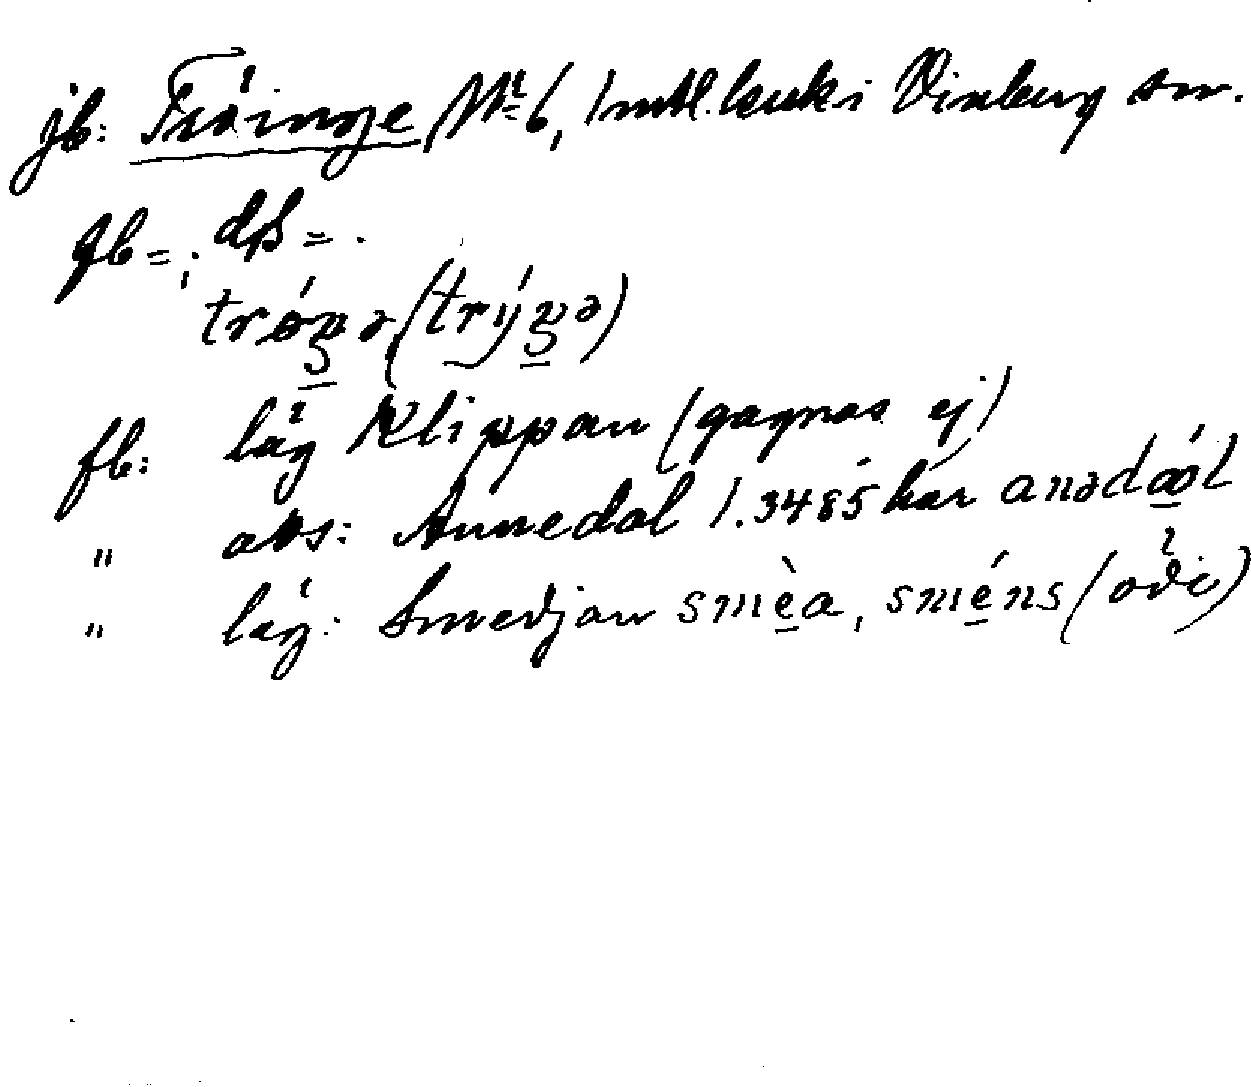 jb: Tröinge Nr 6, 1 mtl. kuki Vinberg sn.
gb =; dß = .
trǿŋə (trýŋə)
fb: läg Klippan (gagnas ej)
" avs: Annedal 1.3485 har anədǻl
" läg: Smedjan smèa, sméns (